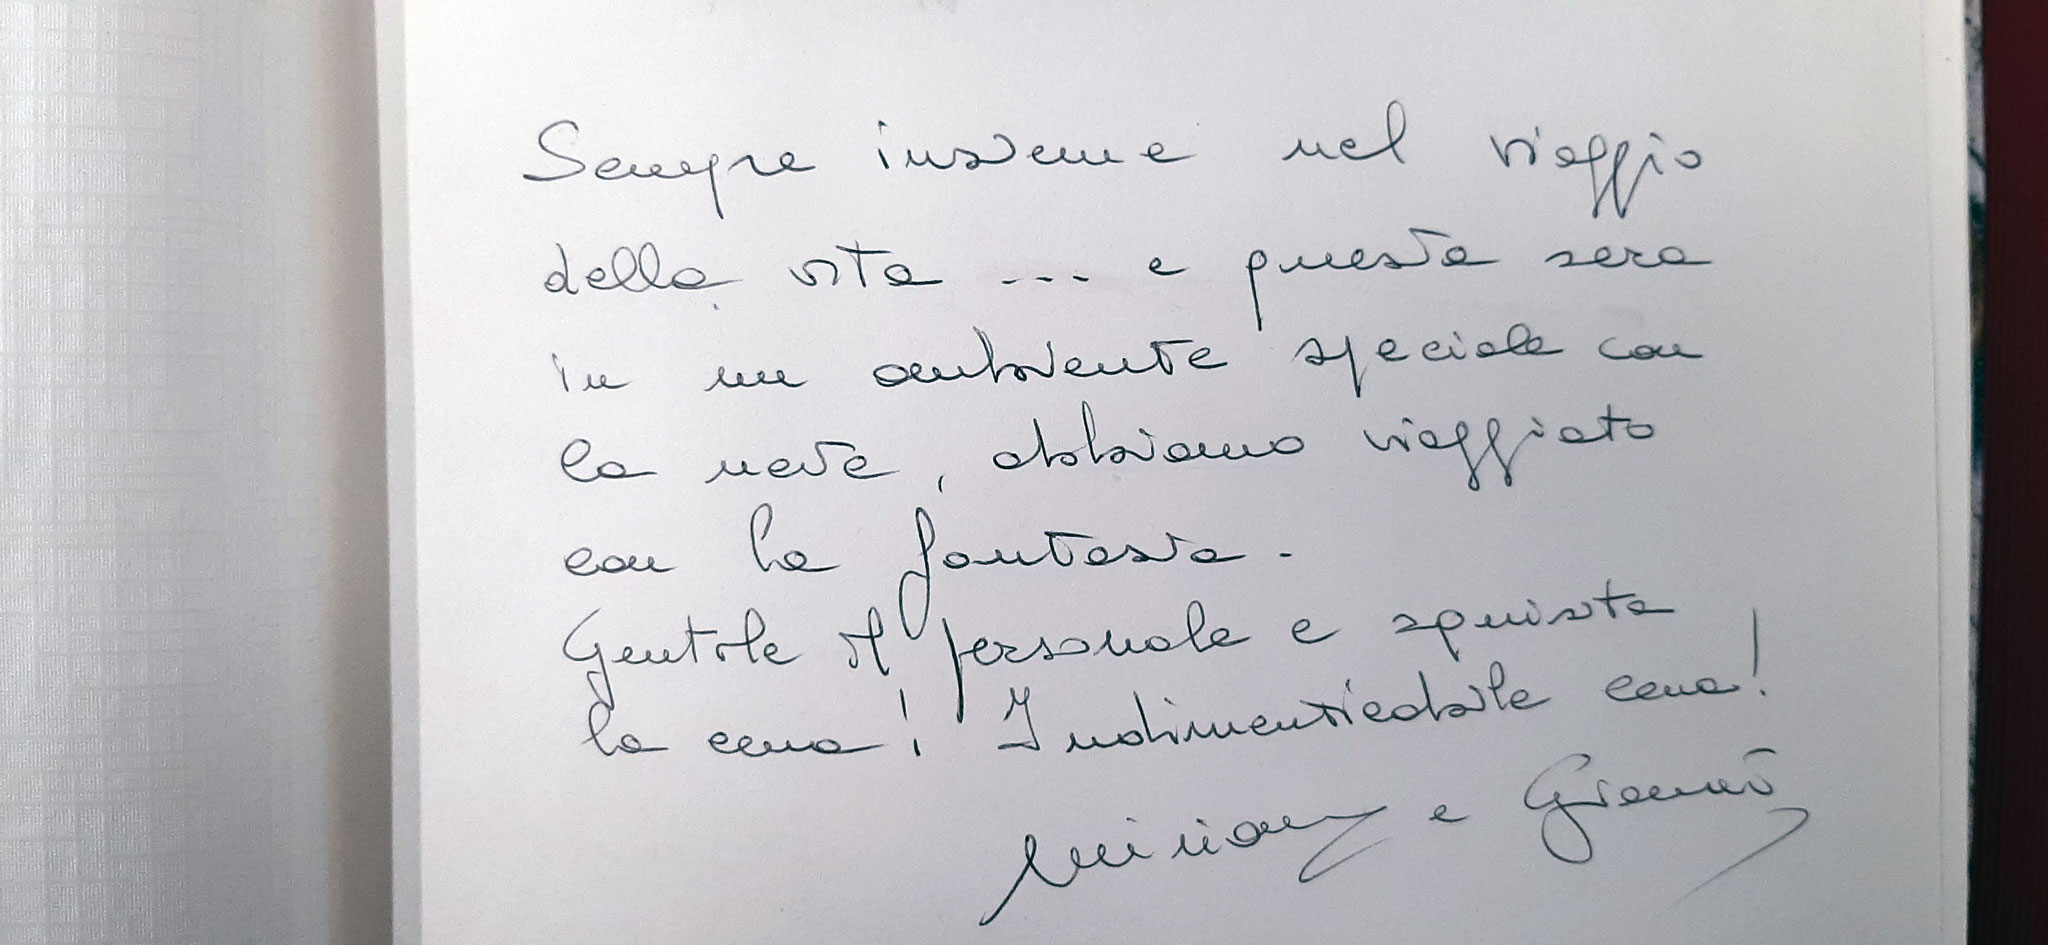 Sempre insieme nel viaggio
della vita ... e questa sera
in un ambiente speciale con
la neve, abbiamo viaggiato
con la fantasia.
Gentile il personale e squisita
la cena! Indimenticabile cena!
Miriam e Gianni